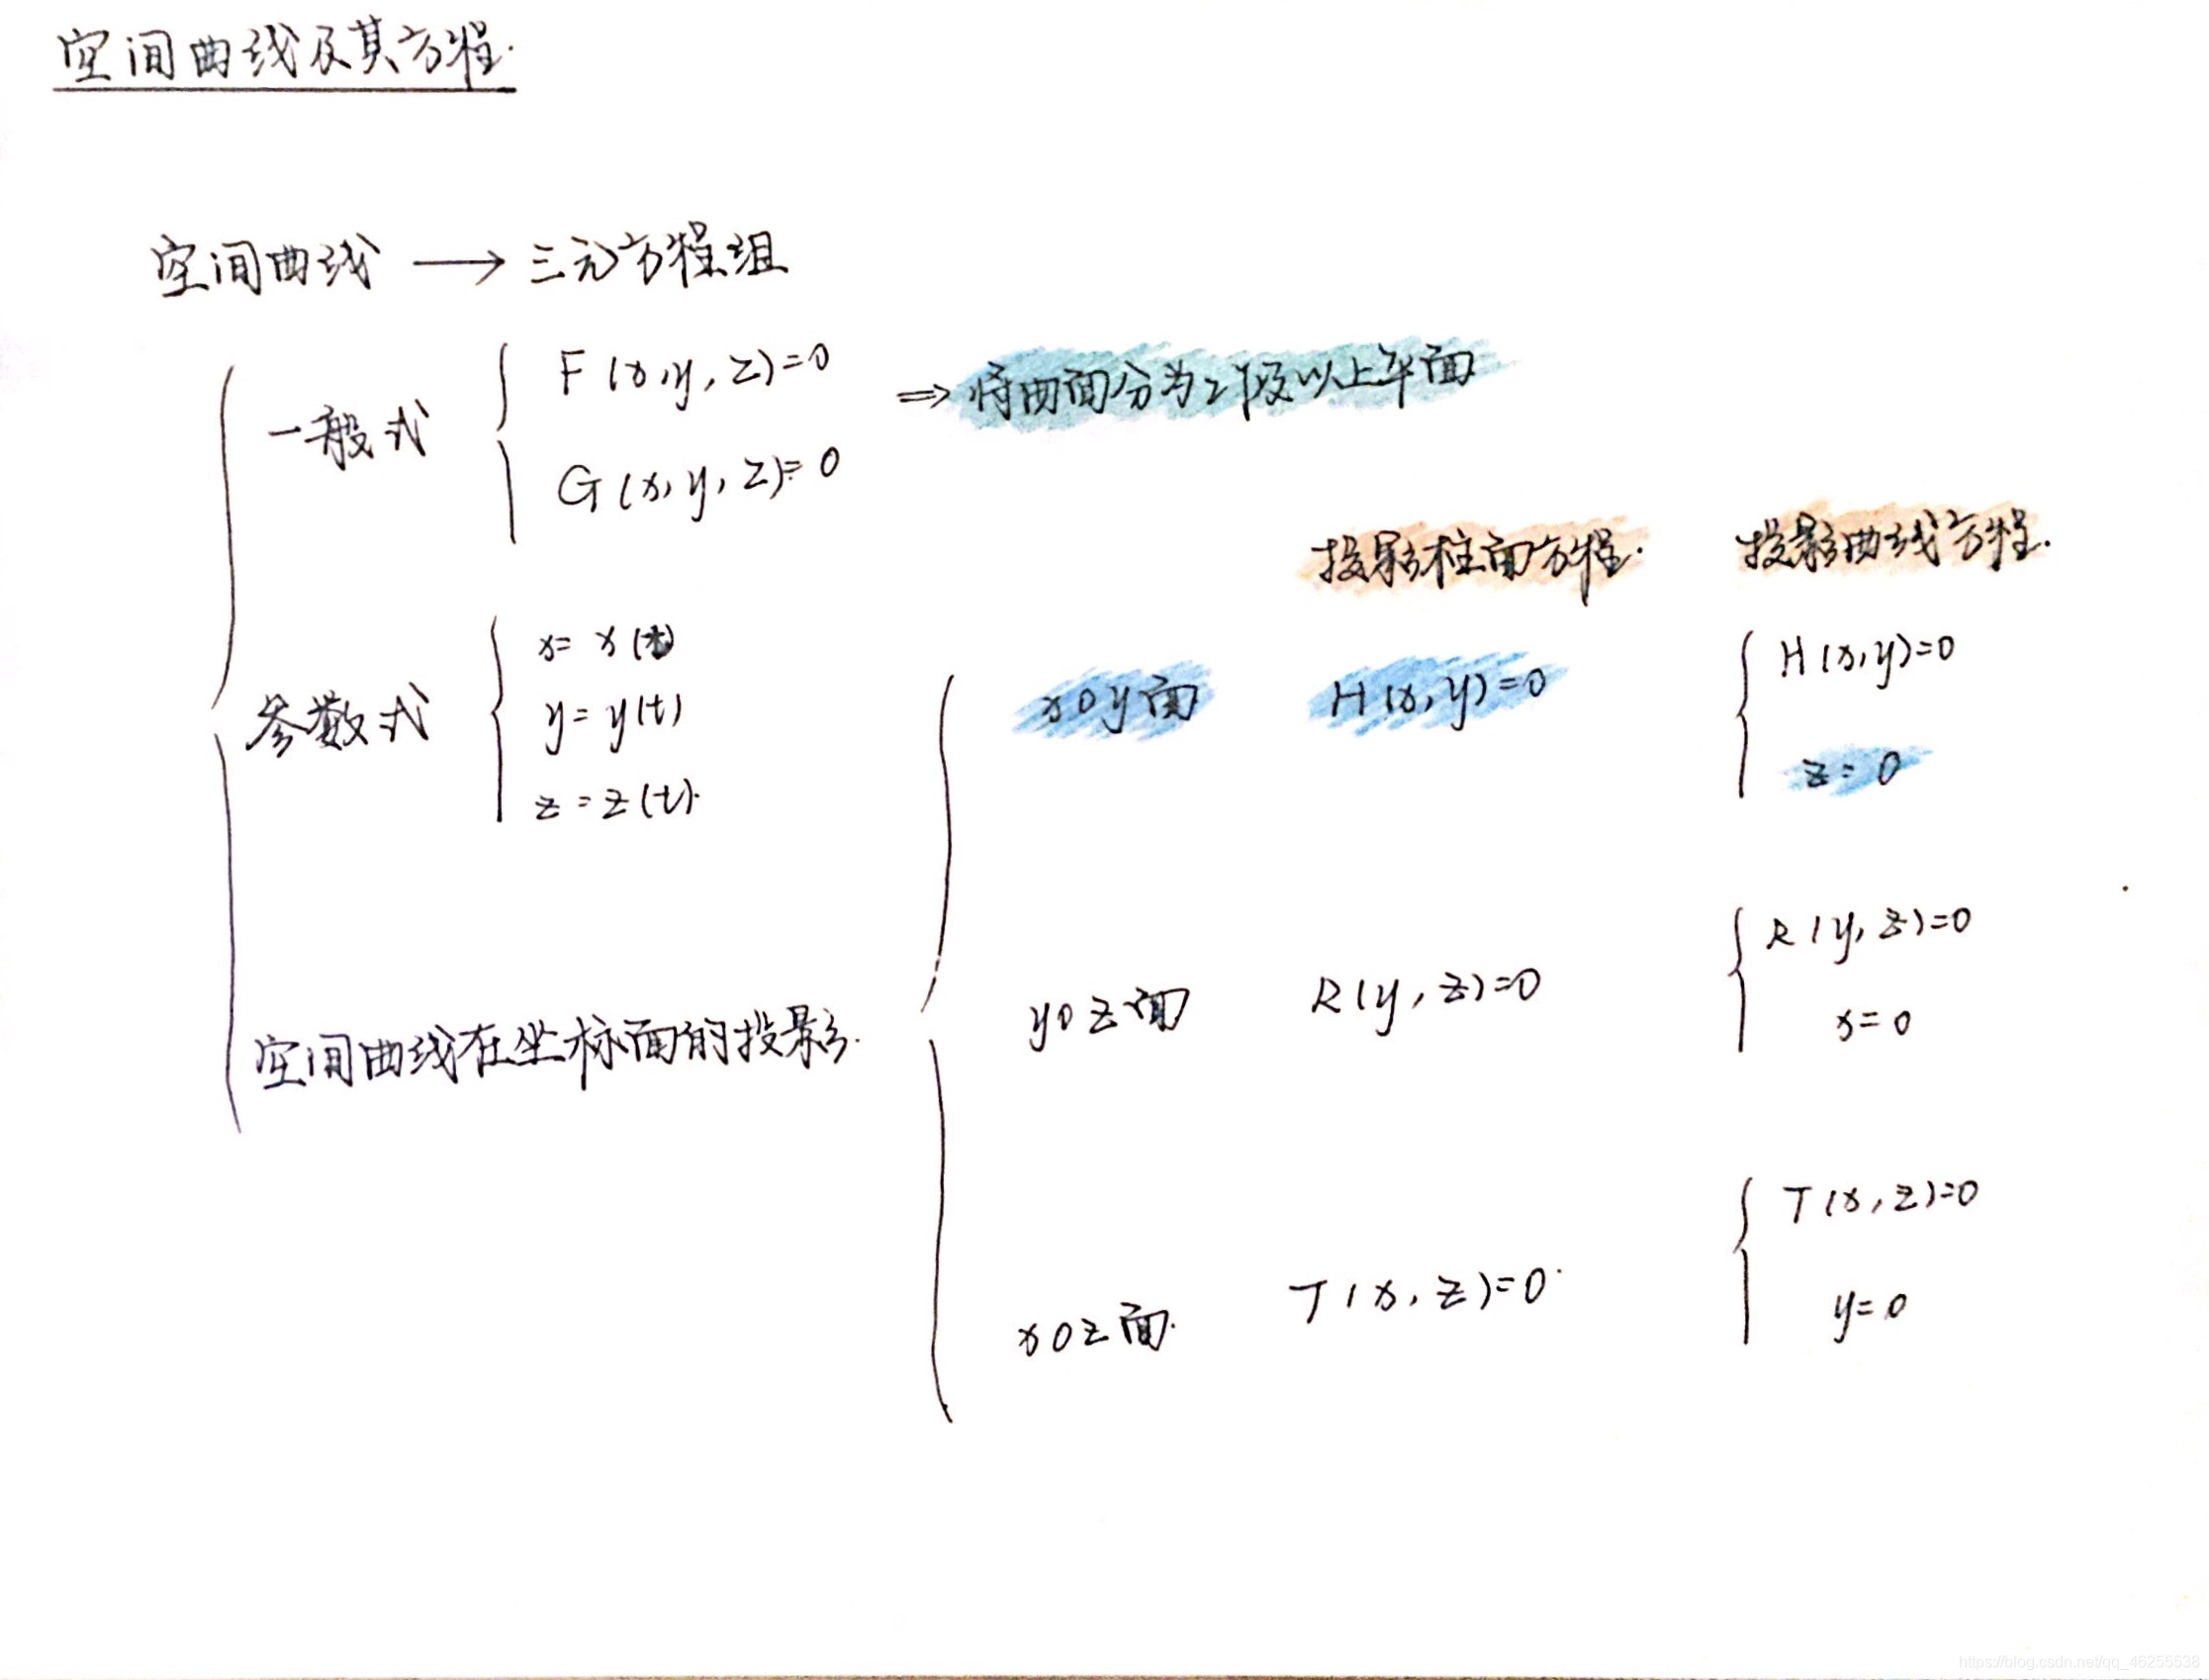 空间曲线及其方程.
空间曲线 → 三元方程组
一般式 { F(x,y,z)=0
G(x,y,z)=0
⇒ 将曲面分为2个及以上平面
参数式 { x=x(t)
y=y(t)
z=z(t).
空间曲线在坐标面的投影.
投影柱面方程. 投影曲线方程.
xoy面 H(x,y)=0 { H(x,y)=0
z=0
yoz面 R(y,z)=0 { R(y,z)=0
x=0
xoz面. T(x,z)=0. { T(x,z)=0
y=0
https://blog.csdn.net/qq_46255538